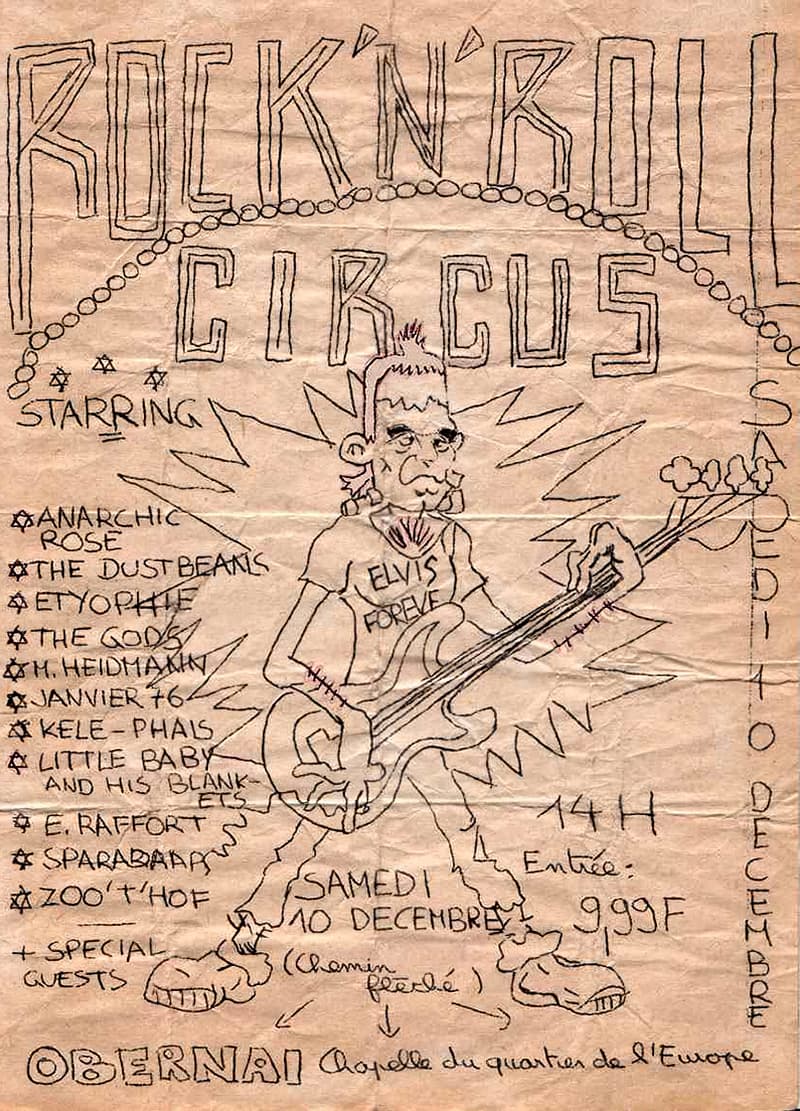 ROCK'N'ROLL
CIRCUS
STARRING
ANARCHIC
ROSE
THE DUSTBEANS
ETYOPHIE
THE GODS
H. HEIDMANN
JANVIER 76
KELE-PHAIS
LITTLE BABY
AND HIS BLANK-
ETS
E. RAFFORT
SPARADAAP
ZOO'T'HOF
+ SPECIAL
GUESTS
ELVIS
FOREVE
14 H
Entrée:
9,99F
SAMEDI
10 DECEMBRE
(Chemin
fléché)
OBERNAI Chapelle du quartier de l'Europe
SAMEDI 10 DECEMBRE